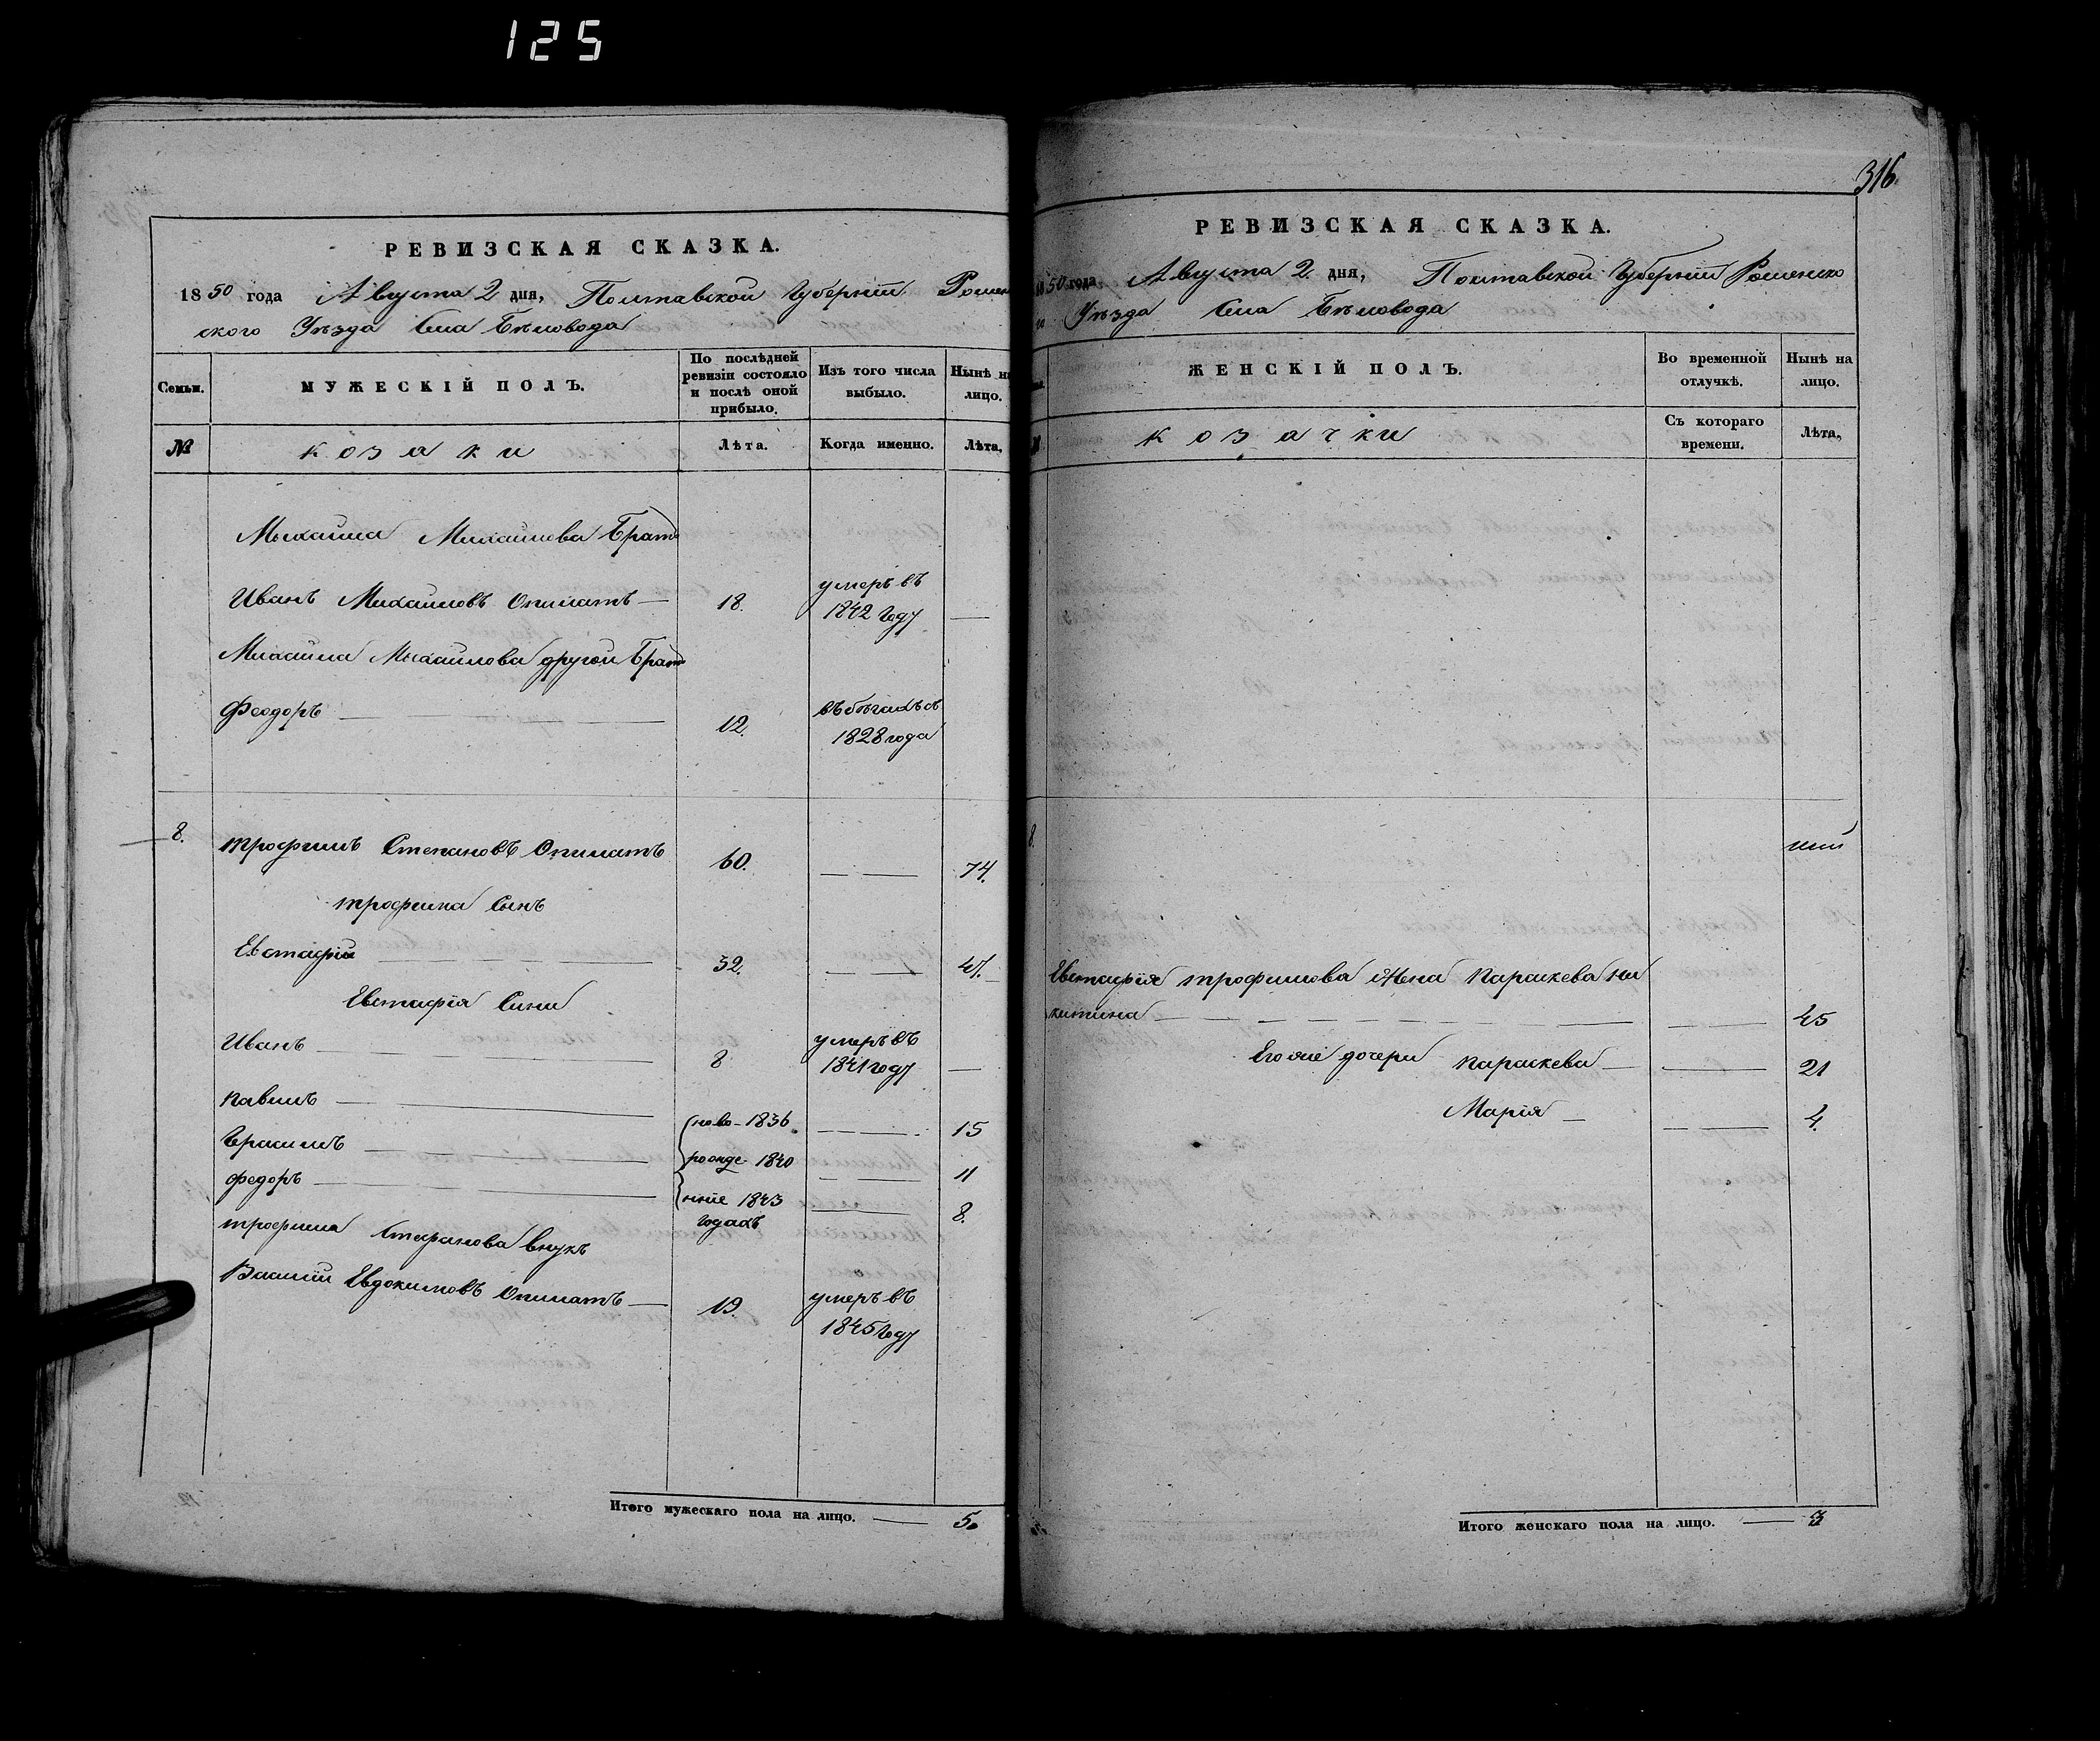 125
РЕВИЗСКАЯ СКАЗКА.
1850 года Августа 2 дня, Полтавской Губерніи Ромен
ского Уѣзда Села Бѣловода
Семьи.
МУЖЕСКІЙ ПОЛЪ.
По послѣдней ревизіи состояло и послѣ оной прибыло.
Изъ того числа выбыло.
Нынѣ на лицо.
№
козаки
Лѣта.
Когда именно.
Лѣта,
Михаила Михаилова Братъ
Иванъ Михаиловъ Опилатъ — 18. умеръ въ 1842 году —
Михаила Михаилова другой Братъ
Феодоръ — 12. въ бѣгахъ съ 1828 года
8. Трофимъ Степановъ Опилатъ 60. — 74.
Трофима Сынъ
Евстафій — 32. — 47.
Евстафія Сини
Иванъ — 8 умеръ въ 1841 году —
Павилъ — ново- 1836 — 15
Герасимъ — рожде- 1840 — 11
Федоръ — нніе 1843 — 8.
годахъ
Трофима Стефанова внукъ
Василій Евдокимовъ Опилатъ — 19. умеръ въ 1845 году
Итого мужескаго пола на лицо. — 5.
316.
РЕВИЗСКАЯ СКАЗКА.
1850 года Августа 2 дня, Полтавской Губерніи Роменско
го Уѣзда Села Бѣловода
ЖЕНСКІЙ ПОЛЪ.
Во временной отлучкѣ.
Нынѣ на лицо.
козачки
Съ котораго времени.
Лѣта,
8.
Евстафія Трофимова Жена Параскева Ни
китина — — 45
Его же дочери Параскева — — 21
Марія — — 4.
Итого женскаго пола на лицо. — 3